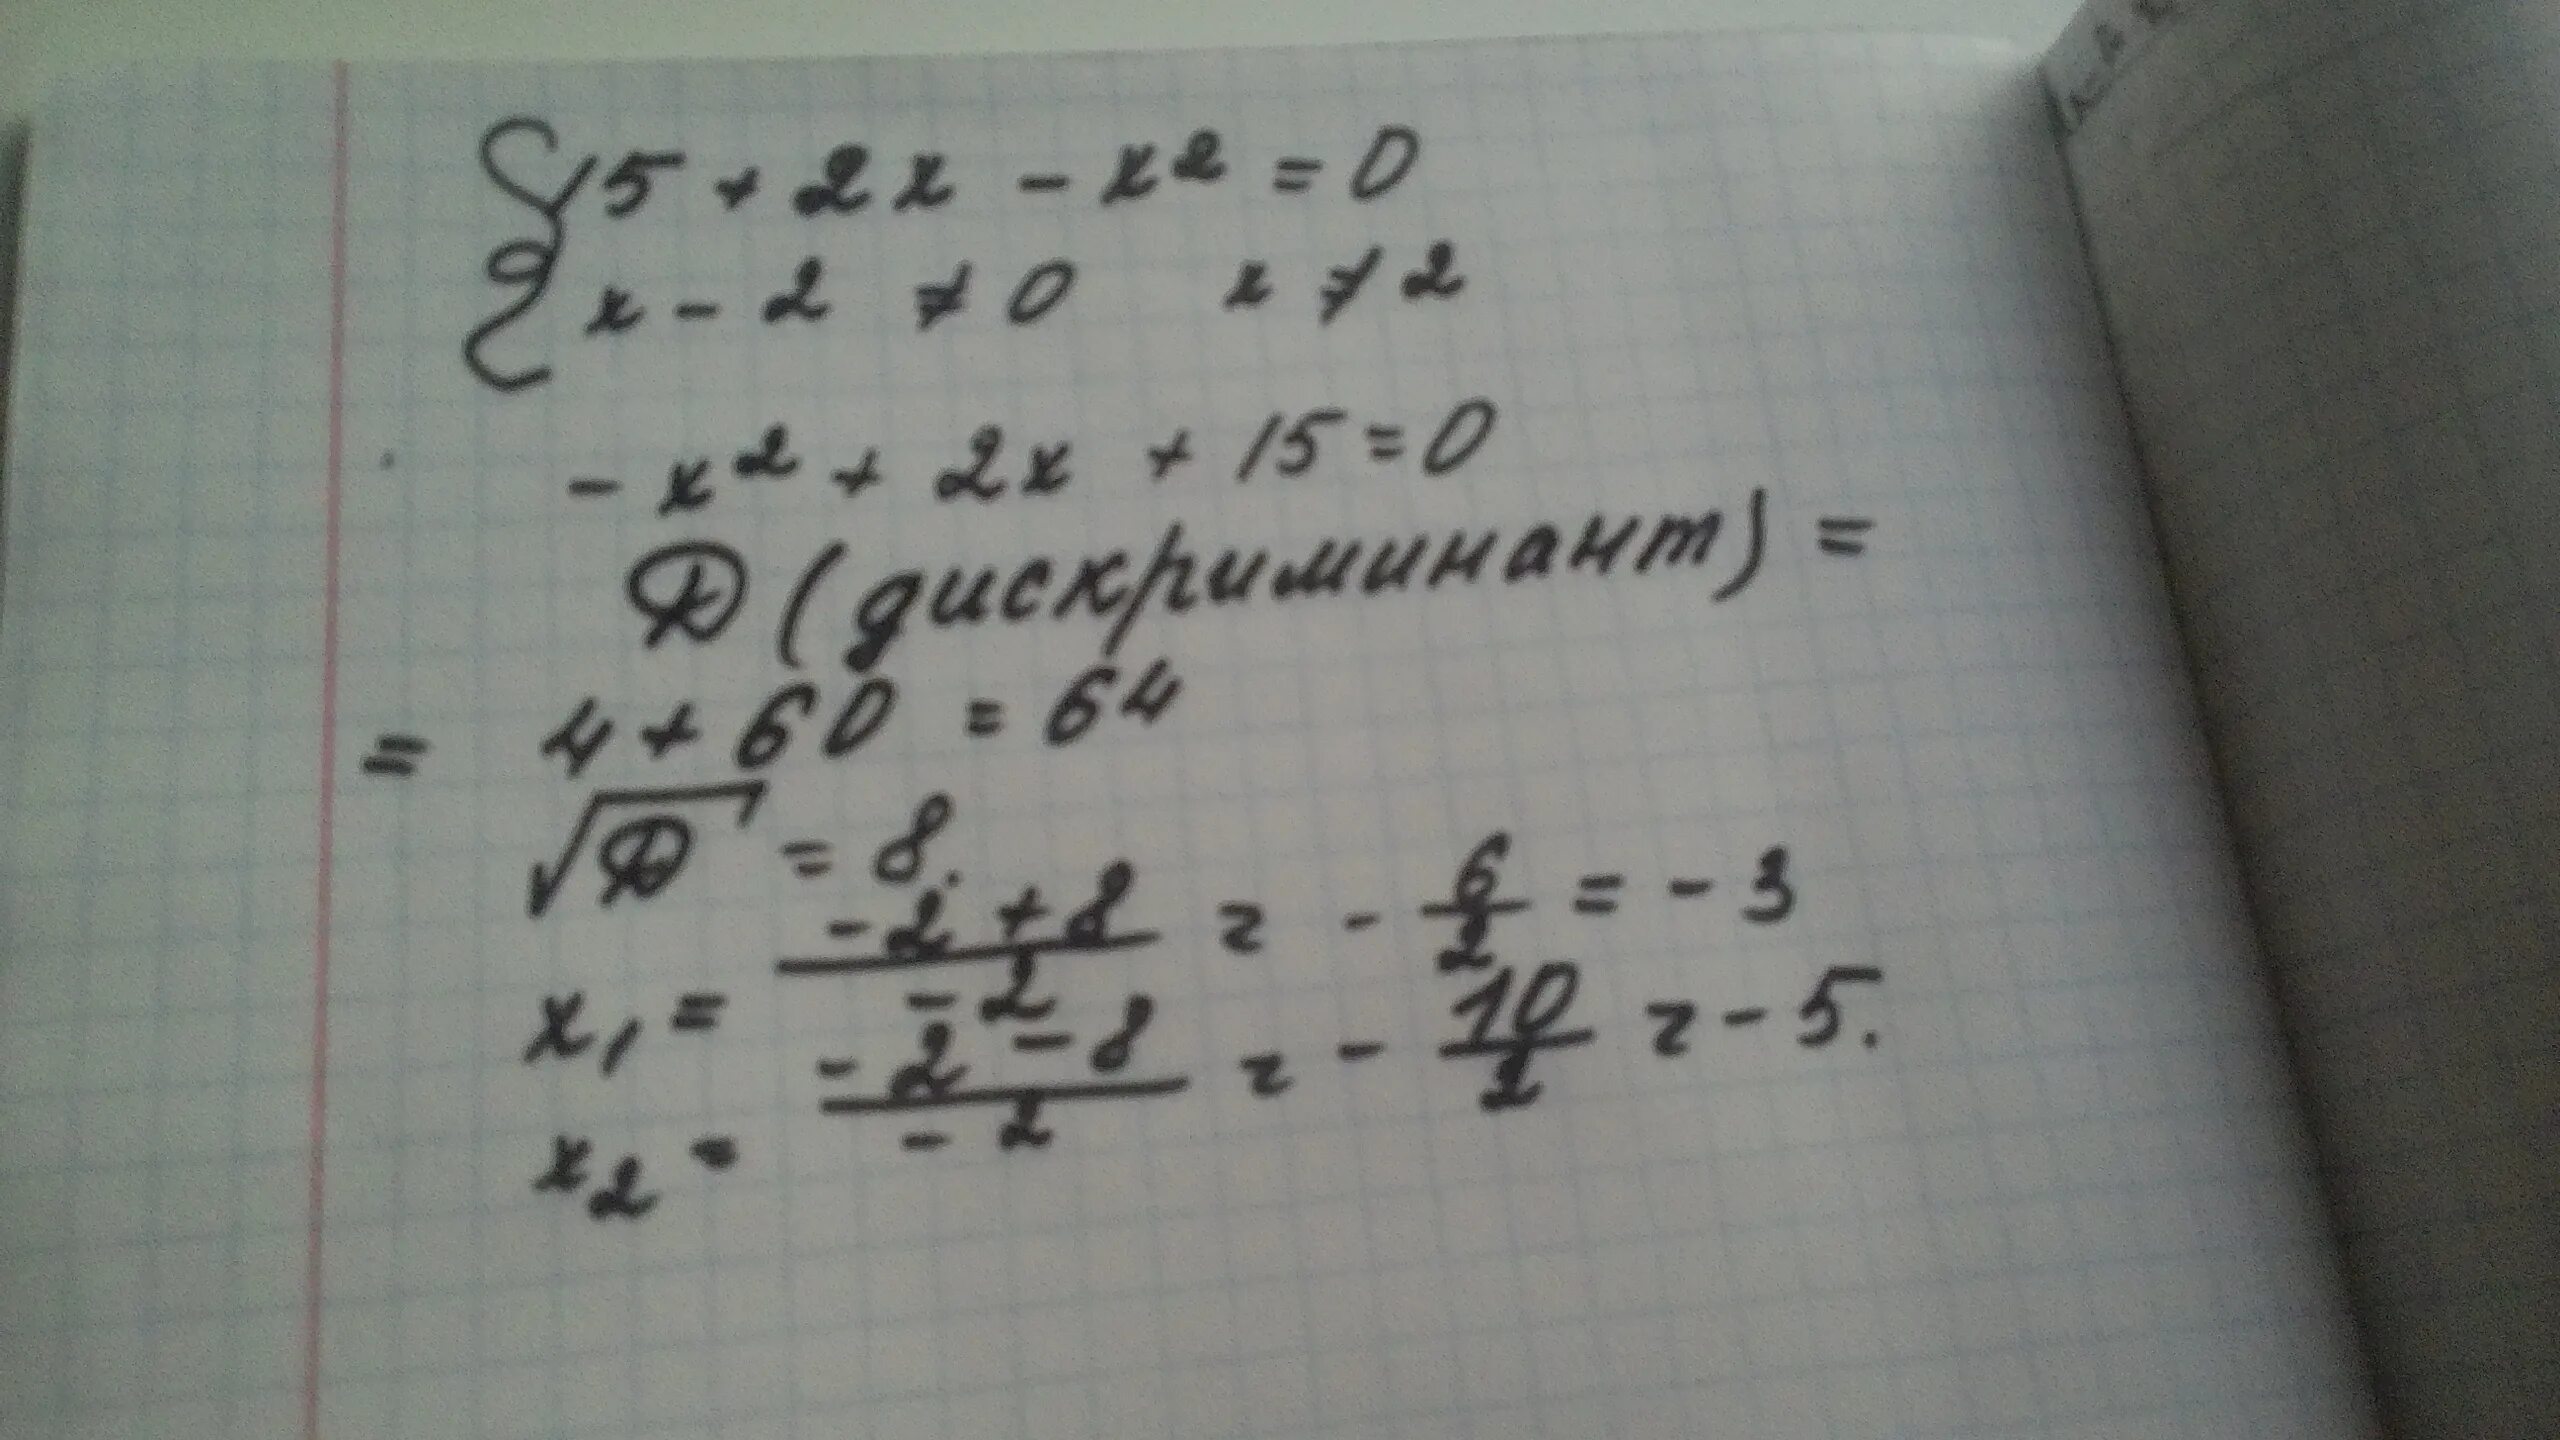 {15 + 2x - x² = 0
{x - 2 ≠ 0 x ≠ 2
- x² + 2x + 15 = 0
D (дискриминант) =
= 4 + 60 = 64
√D = 8.
x₁ = (-2 + 8)/(-2) = - 6/2 = - 3
x₂ = (-2 - 8)/(-2) = - 10/2 = - 5.